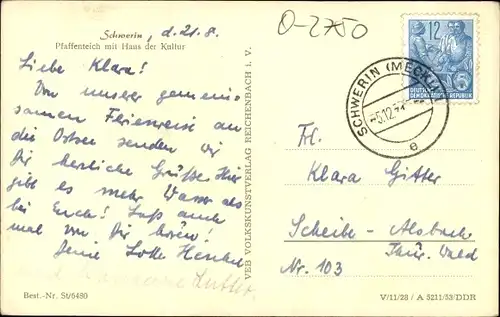 O-2750
Schwerin, d. 21.8.
Pfaffenteich mit Haus der Kultur
Liebe Klara!
Von unserer gemein-
samen Ferienreise an
die Ostsee senden wir
Dir herzliche Grüße. Hier
gibt es mehr Wasser als
bei Euch! Laß auch
mal von Dir hören!
Deine Lotte
Best.-Nr. St/6480
VEB VOLKSKUNSTVERLAG REICHENBACH i. V.
12
DEUTSCHE
DEMOKRATISCHE REPUBLIK
SCHWERIN (MECKL)
-5.12.
e
Frl.
Klara Gitter
Scheibe-Alsbach
Thür. Wald
Nr. 103
V/11/28 / A 5211/53/DDR